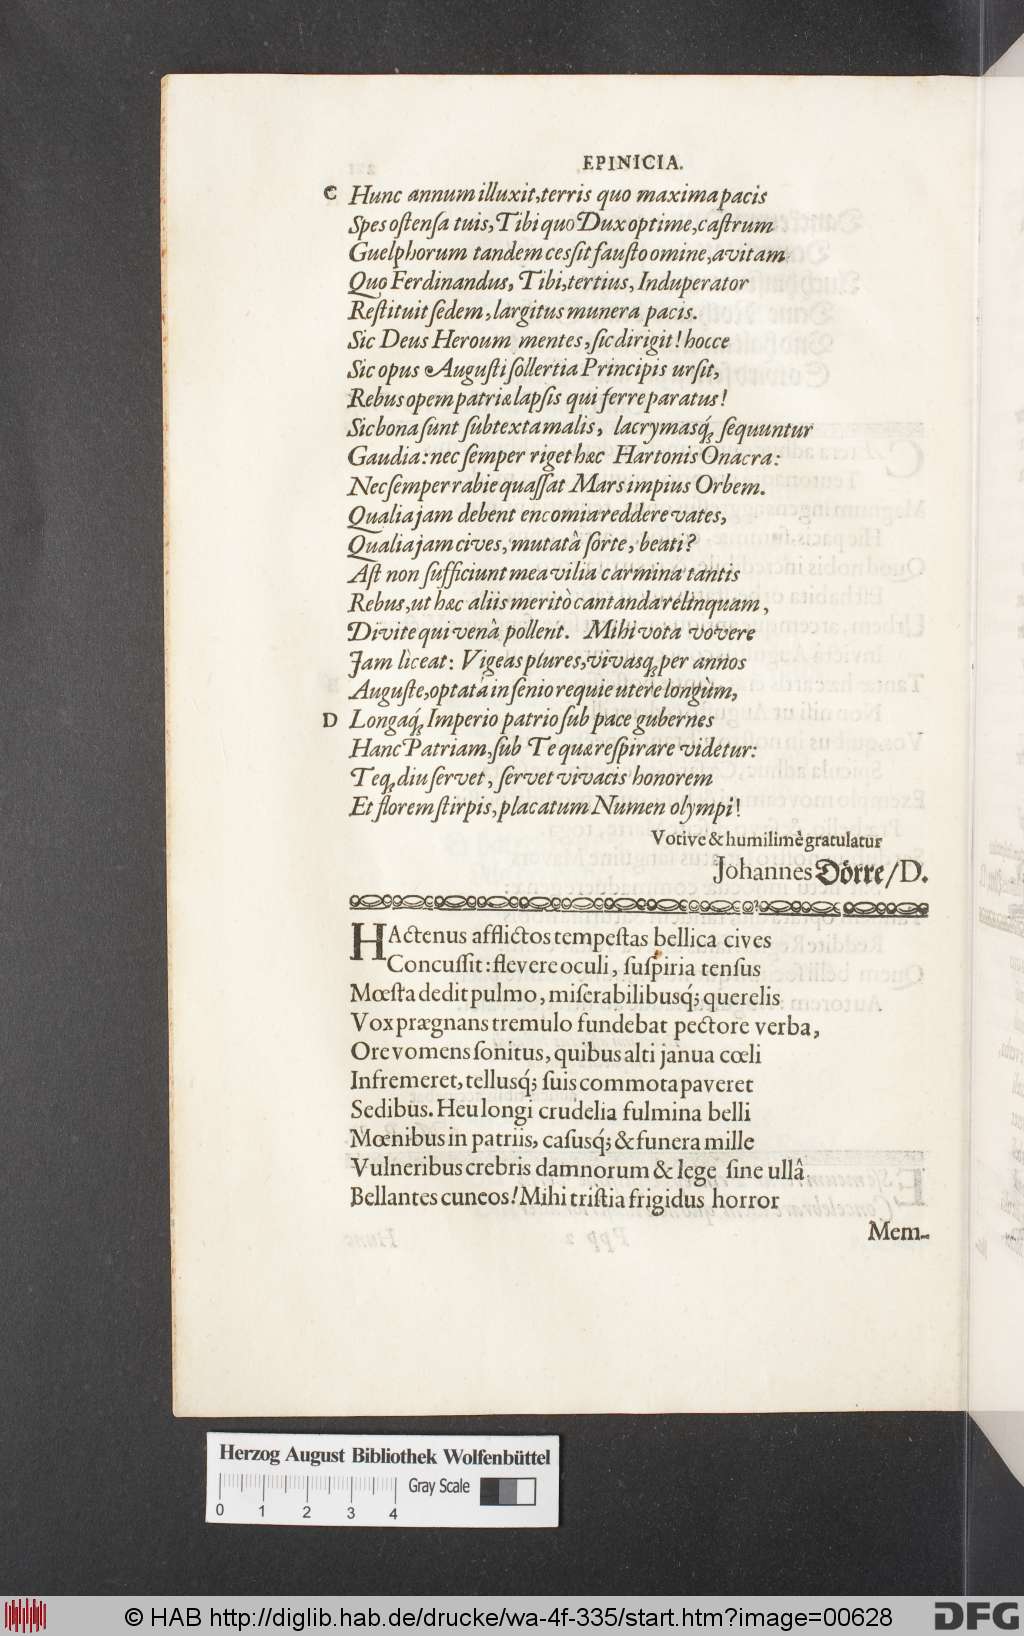 EPINICIA.
C Hunc annum illuxit, terris quo maxima pacis
Spes ostenſa tuis, Tibi quo Dux optime, castrum
Guelphorum tandem cesſit fausto omine, avitam
Quo Ferdinandus, Tibi, tertius, Induperator
Restituit ſedem, largitus munera pacis.
Sic Deus Heroum mentes, ſic dirigit! hocce
Sic opus Augusti ſollertia Principis urſit,
Rebus opem patriæ lapſis qui ferre paratus!
Sic bona ſunt ſubtexta malis, lacrymasq́; ſequuntur
Gaudia: nec ſemper riget hæc Hartonis Onacra:
Nec ſemper rabie quaſſat Mars impius Orbem.
Qualia jam debent encomia reddere vates,
Qualia jam cives, mutatâ ſorte, beati?
Ast non ſufficiunt mea vilia carmina tantis
Rebus, ut hæc aliis meritò cantanda relinquam,
Divite qui venâ pollent. Mihi vota vovere
Jam liceat: Vigeas plures, vivasq; per annos
Auguste, optatâ in ſenio requie utere longùm,
D Longaq́; Imperio patrio ſub pace gubernes
Hanc Patriam, ſub Te quæ reſpirare videtur:
Teq; diu ſervet, ſervet vivacis honorem
Et florem stirpis, placatum Numen olympi!
Votivè & humilimè gratulatur
Johannes Dörre/D.
HActenus afflictos tempeſtas bellica cives
Concuſſit: flevere oculi, ſuſpiria tenſus
Mœſta dedit pulmo, miſerabilibusq́; querelis
Vox prægnans tremulo fundebat pectore verba,
Ore vomens ſonitus, quibus alti janua cœli
Infremeret, tellusq́; ſuis commota paveret
Sedibus. Heu longi crudelia fulmina belli
Mœnibus in patriis, caſusq́; & funera mille
Vulneribus crebris damnorum & lege ſine ullâ
Bellantes cuneos! Mihi triſtia frigidus horror
Mem-
Herzog August Bibliothek Wolfenbüttel
0 1 2 3 4 Gray Scale
© HAB http://diglib.hab.de/drucke/wa-4f-335/start.htm?image=00628
DFG